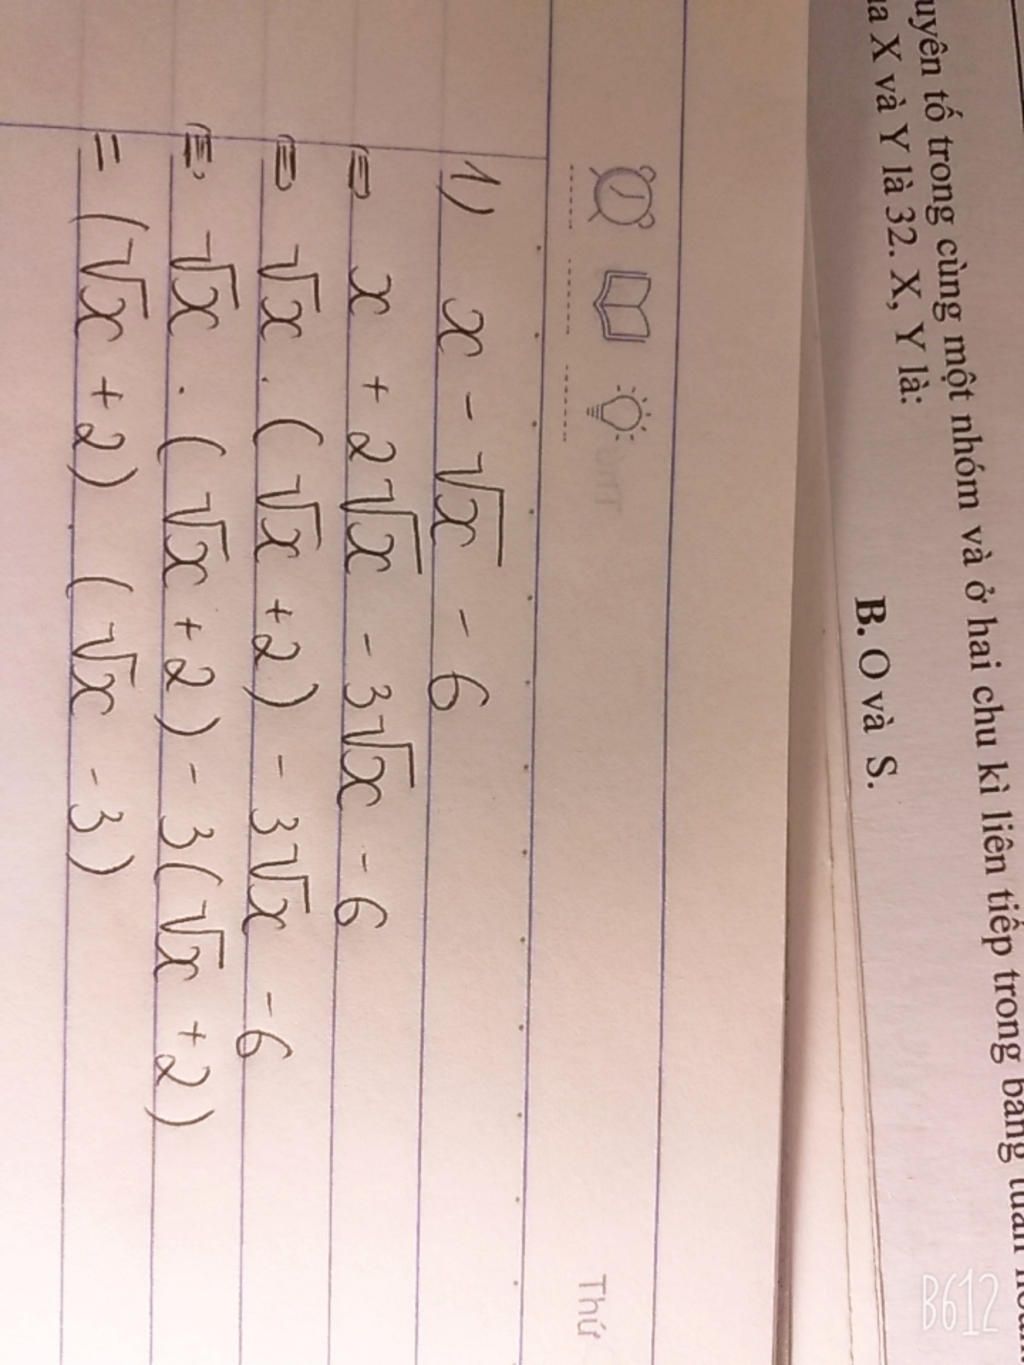 uyên tố trong cùng một nhóm và ở hai chu kì liên tiếp trong bảng tuần
X và Y là 32. X, Y là:
B. O và S.
Thứ
1) x - √x - 6
= x + 2√x - 3√x - 6
= √x . (√x + 2) - 3√x - 6
= √x . (√x + 2) - 3(√x + 2)
= (√x + 2) (√x - 3)
B612